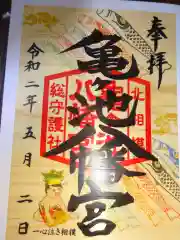 奉拝
北相模
亀ヶ池八幡宮
総守護社
令和二年五月二日
一心泣き相撲